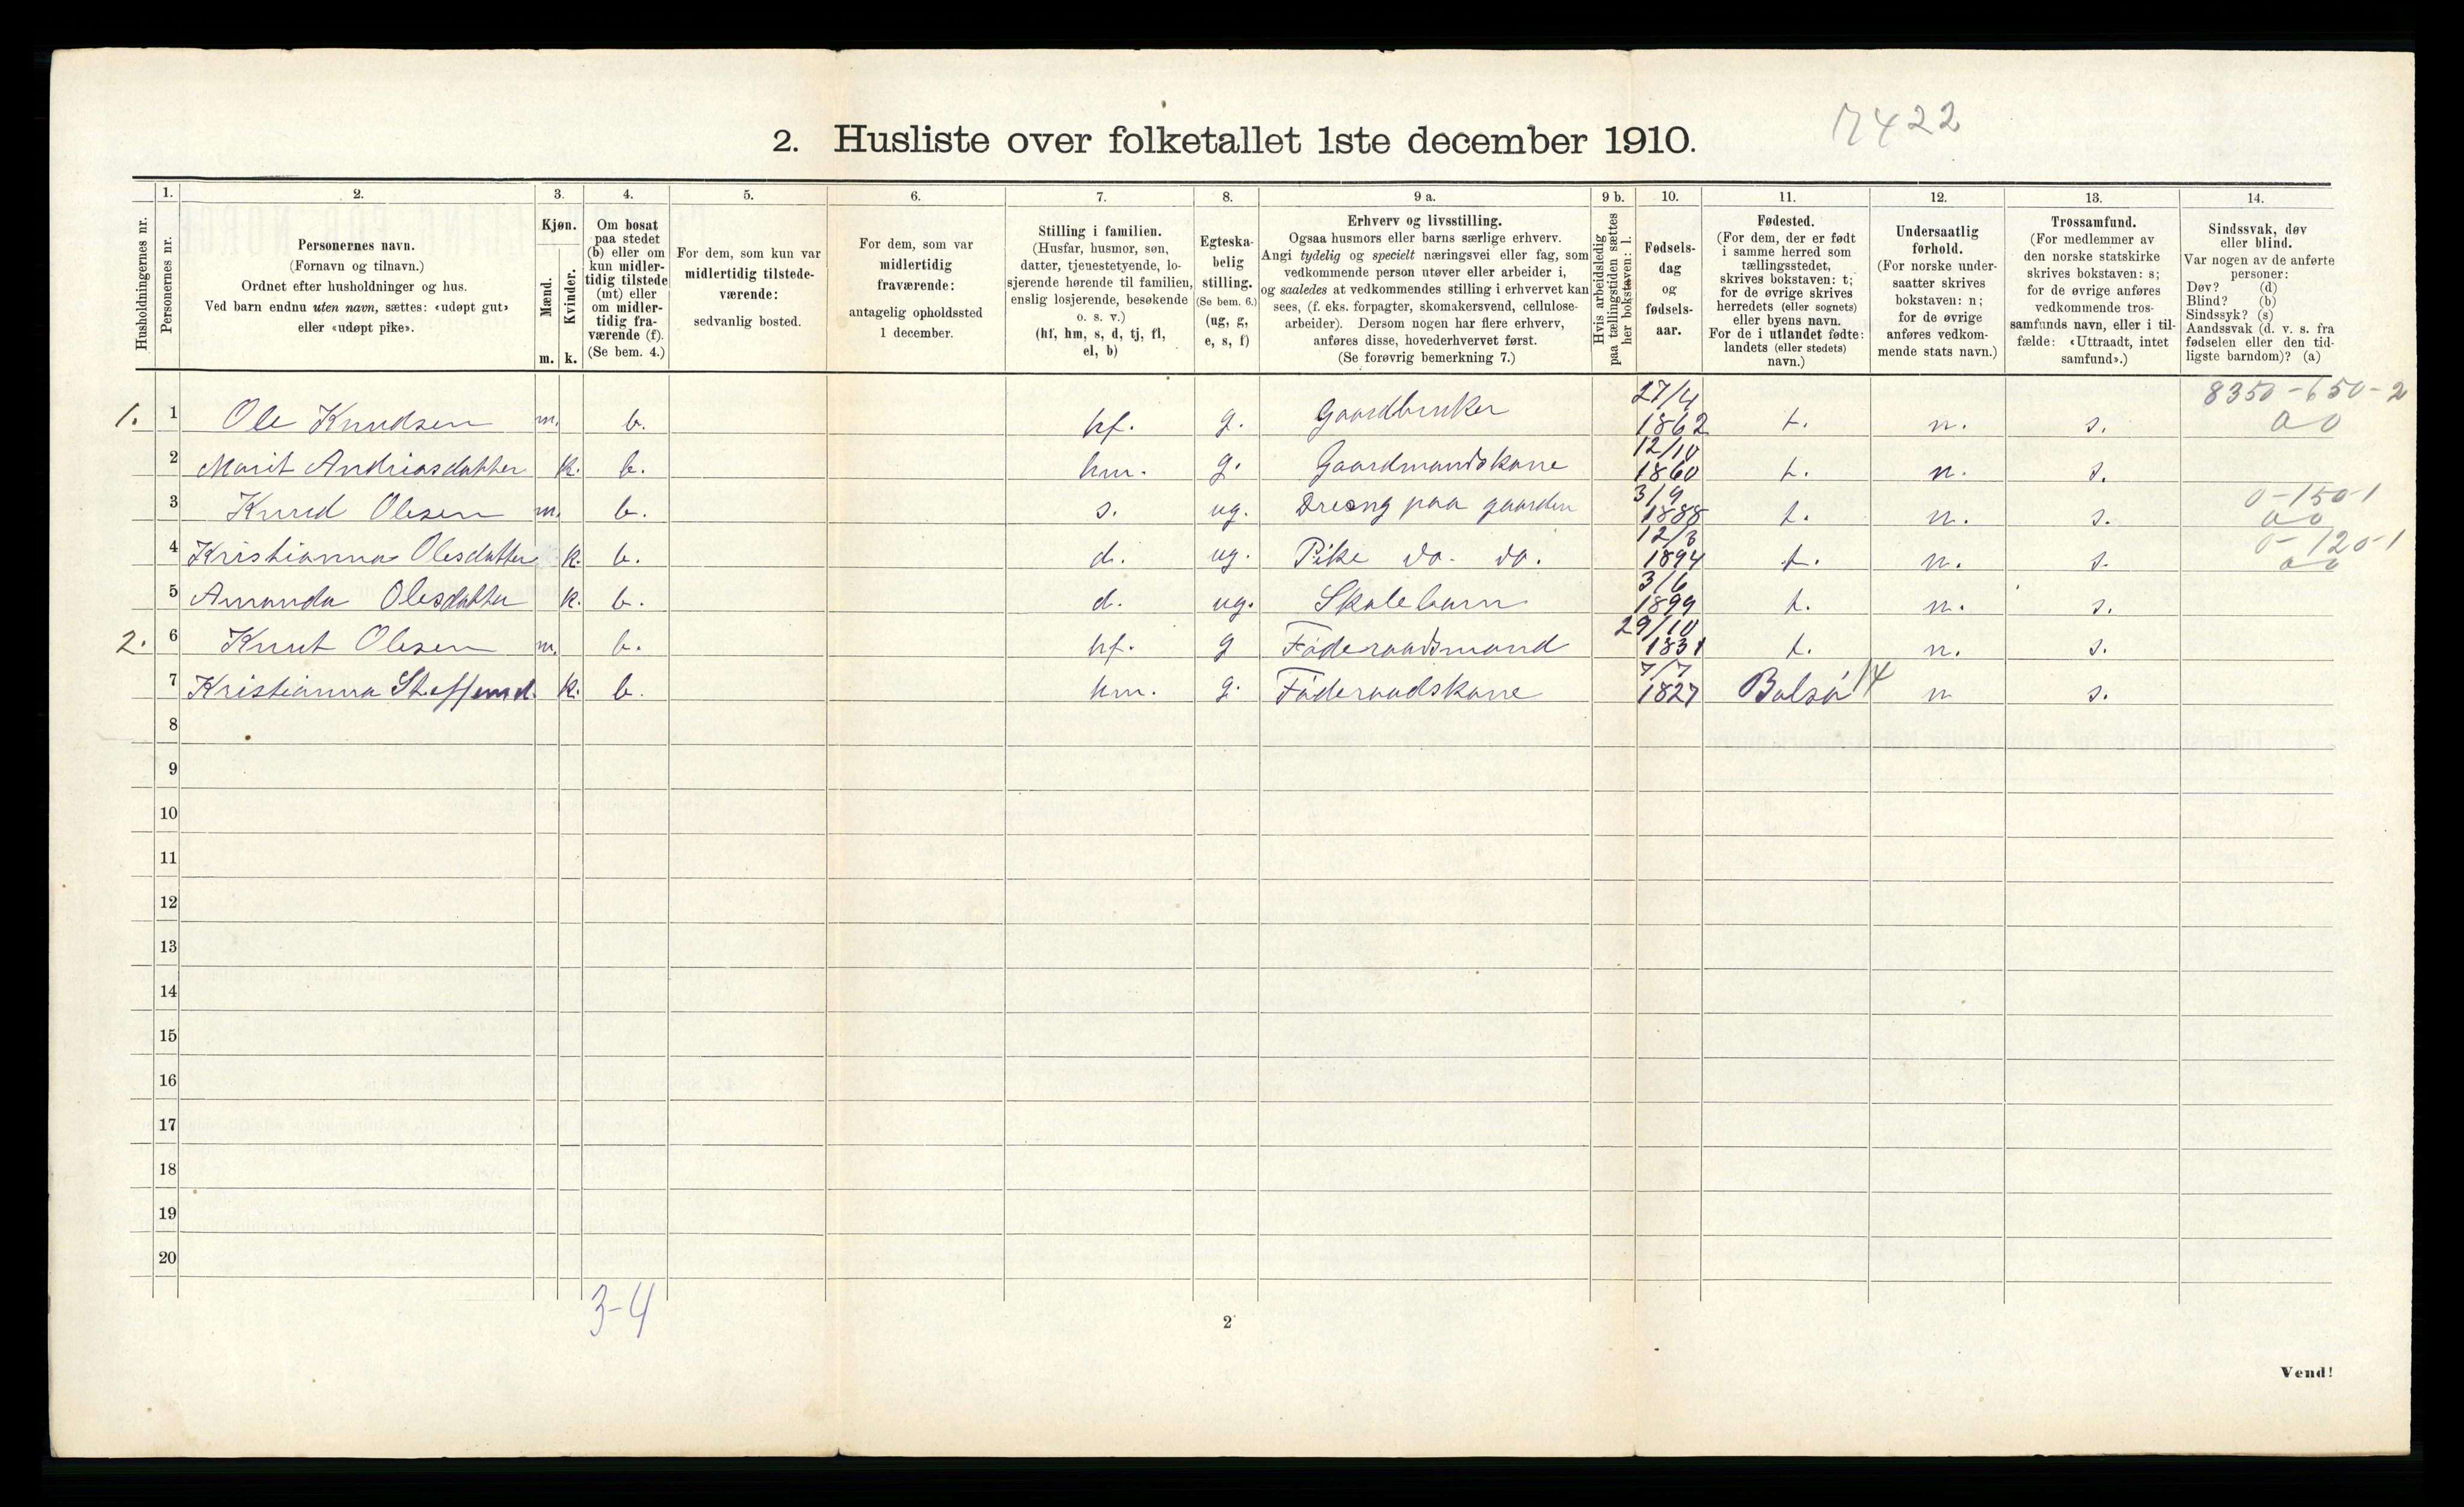 7422
2. Husliste over folketallet 1ste december 1910.
Husholdningernes nr.
1.
Personernes nr.
2.
Personernes navn.
(Fornavn og tilnavn.)
Ordnet efter husholdninger og hus.
Ved barn endnu uten navn, sættes: «udøpt gut»
eller «udøpt pike».
3.
Kjøn.
Mænd.
Kvinder.
m. k.
4.
Om bosat
paa stedet
(b) eller om
kun midler-
tidig tilstede
(mt) eller
om midler-
tidig fra-
værende (f).
(Se bem. 4.)
5.
For dem, som kun var
midlertidig tilstede-
værende:
sedvanlig bosted.
6.
For dem, som var
midlertidig
fraværende:
antagelig opholdssted
1 december.
7.
Stilling i familien.
(Husfar, husmor, søn,
datter, tjenestetyende, lo-
sjerende hørende til familien,
enslig losjerende, besøkende
o. s. v.)
(hf, hm, s, d, tj, fl,
el, b)
8.
Egteska-
belig
stilling.
(Se bem. 6.)
(ug, g,
e, s, f)
9 a.
Erhverv og livsstilling.
Ogsaa husmors eller barns særlige erhverv.
Angi tydelig og specielt næringsvei eller fag, som
vedkommende person utøver eller arbeider i,
og saaledes at vedkommendes stilling i erhvervet kan
sees, (f. eks. forpagter, skomakersvend, cellulose-
arbeider). Dersom nogen har flere erhverv,
anføres disse, hovederhvervet først.
(Se forøvrig bemerkning 7.)
9 b.
Hvis arbeidsledig
paa tællingstiden sættes
her bokstaven: l.
10.
Fødsels-
dag
og
fødsels-
aar.
11.
Fødested.
(For dem, der er født
i samme herred som
tællingsstedet,
skrives bokstaven: t;
for de øvrige skrives
herredets (eller sognets)
eller byens navn.
For de i utlandet fødte:
landets (eller stedets)
navn.)
12.
Undersaatlig
forhold.
(For norske under-
saatter skrives
bokstaven: n;
for de øvrige
anføres vedkom-
mende stats navn.)
13.
Trossamfund.
(For medlemmer av
den norske statskirke
skrives bokstaven: s;
for de øvrige anføres
vedkommende tros-
samfunds navn, eller i til-
fælde: «Uttraadt, intet
samfund».)
14.
Sindssvak, døv
eller blind.
Var nogen av de anførte
personer:
Døv? (d)
Blind? (b)
Sindssyk? (s)
Aandssvak (d. v. s. fra
fødselen eller den tid-
ligste barndom)? (a)
8350-650-2
1. 1 Ole Knudsen m. b. hf. g. Gaardbruker 27/4 1862 t. n. s. 00
2 Marit Andriasdatter k. b. hm. g. Gaardmandskone 12/10 1860 t. n. s.
0-150-1
3 Knud Olesen m. b. s. ug. Dreong paa gaarden 3/9 1888 t. n. s. 00
0-120-1
4 Kristianna Olesdatter k. b. d. ug. Pike do. do. 12/3 1894 t. n. s. 00
5 Amanda Olesdatter k. b. d. ug. Skolebarn 3/6 1899 t. n. s.
2. 6 Knut Olesen m. b. hf. g Föderaadsmand 29/10 1831 t. n. s.
7 Kristianna Steffensd. k. b. hm. g. Föderaadskone 7/7 1827 Bolsö 14 n s.
8
9
10
11
12
13
14
15
16
17
18
19
20
3-4
2
Vend!